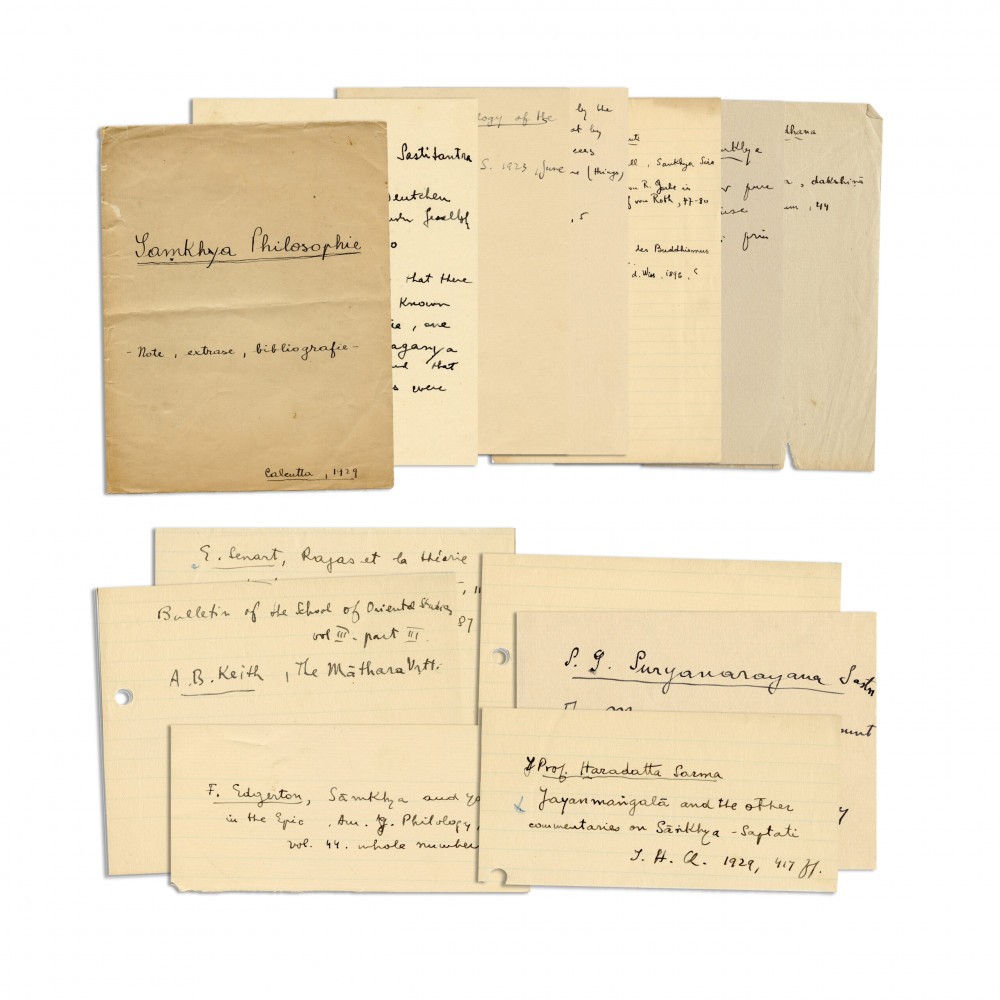 Samkhya Philosophie
- Note, extrase, bibliografie -
Calcutta, 1929
Sastitantra
that there
Known
, one
that
were
logy of the
S. 1923, June
by the
at by
(things,
5
, Sankhya
R. Garbe in
von Roth, 77-80
des Buddhismus
d. Wiss. 1896,
pure
dhana
, dakshiṇā
, 44
E. Senart, Rajas et la théorie
Bulletin of the School of Oriental Studies
vol III - part III.
A. B. Keith, The Māthara Vṛtti.
S. S. Suryanarayana Sastri
F. Edgerton, Sāmkhya and yo
in the Epic. Am. J. Philology,
vol. 44. whole number
Prof. Haradatta Sarma
Jayanmaṅgalā and the other
commentaries on Sāṅkhya - Saptati
I. H. Q. 1929, 417 ff.